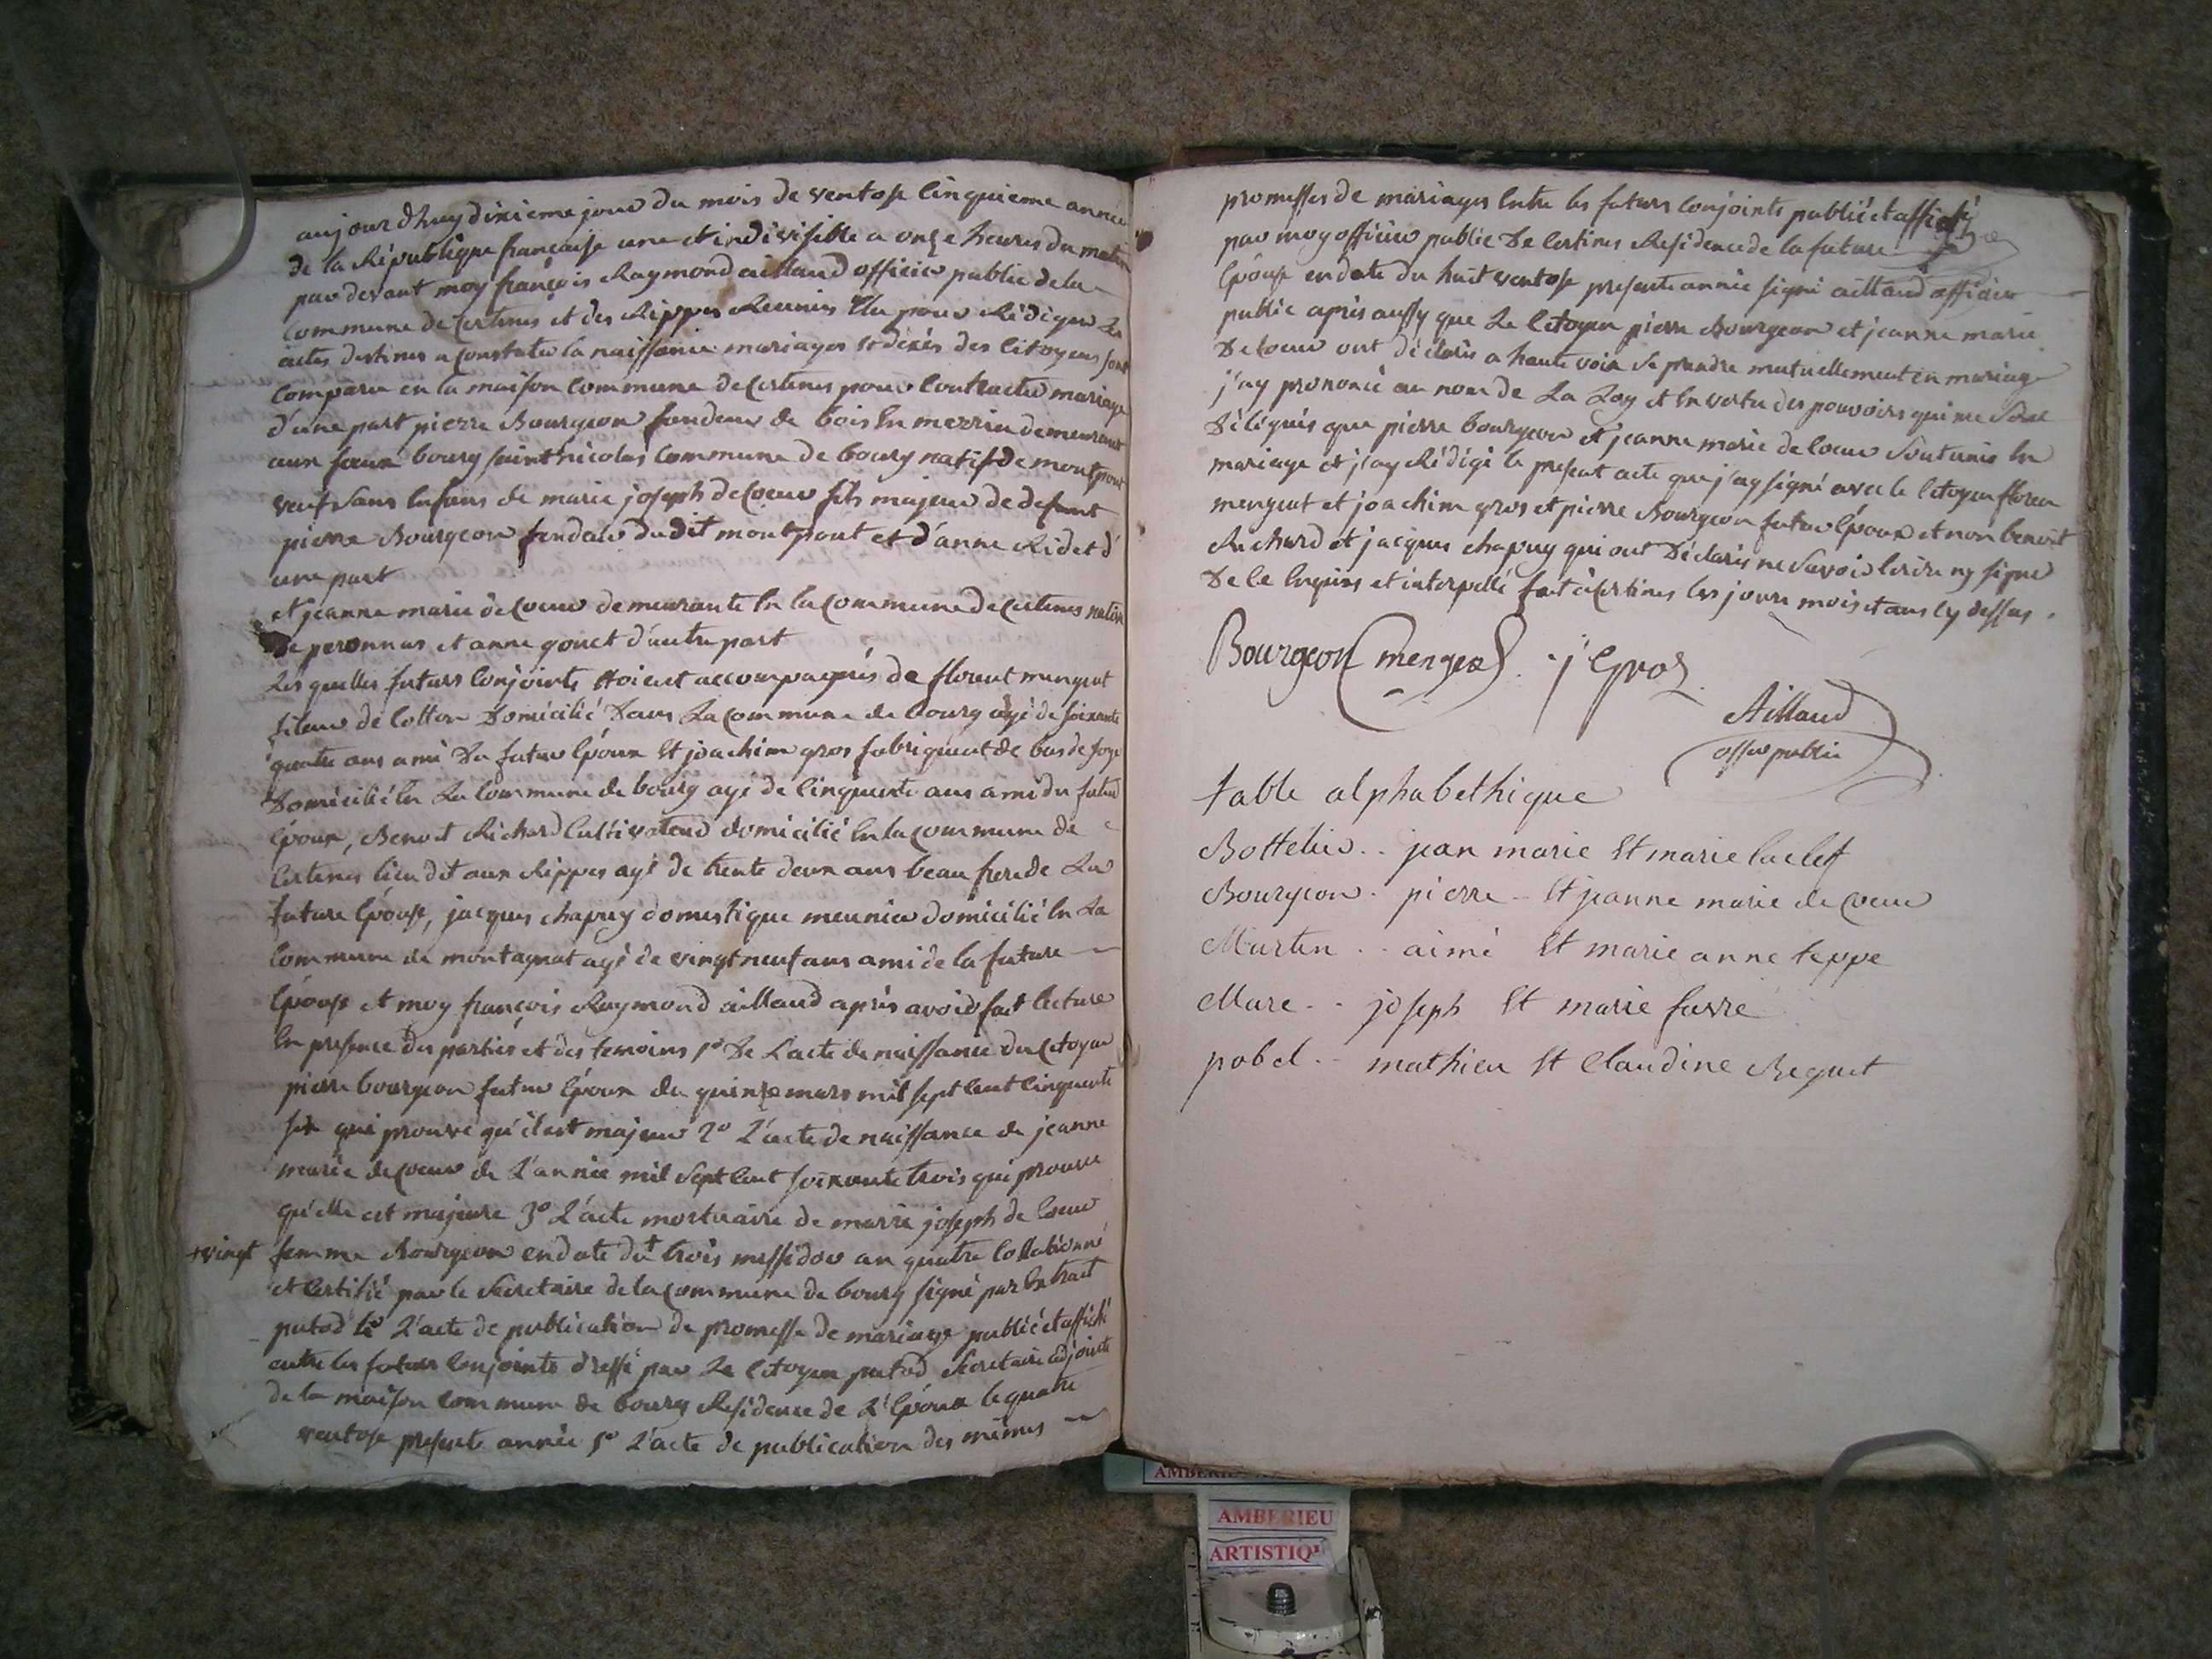 aujourdhuy dixieme jour du mois de ventose cinquieme année
de la République francaise une et indivisible a onze heures du matin
par devant moy françois Raymond aillaud officier public de la
commune de Certines et des Rippes Reunies Elu pour Rédiger les
actes destinés a Constater la naissance mariages et décès des citoyens sont
comparu en la maison commune de Certines pour contracter mariage
d'une part pierre Bourgeon fendeur de bois en merrin demeurant
aux faux bourg saint nicolas commune de bourg natif de montpont
veuf sans enfans de marie joseph deCoeur fils majeur de defunt
pierre Bourgeon fendeur dudit montpont et d'anne Ridet d'
une part
et jeanne marie deCoeur demeurante en la Commune de Certines native
de peronnas et anne gonet d'autre part
Les quelles futurs Conjoints etoient accompagnés de florent mengeat
fileur de cotton Domicilié Dans La Commune de bourg agé de soixante
quatre ans ami Du futur époux Et joachim gros fabriquant de bas de soye
Domicilié en La Commune de bourg agé de cinquante ans ami du futur
époux, Benoit Richard Cultivateur domicilié en la Commune de
Certines lieu dit aux Rippes agé de trente deux ans beau frere de La
future épouse, jacques chapuy domestique meunier domicilié en La
Commune de montagnat agé de vingt neuf ans ami de la future
épouse et moy françois Raymond aillaud après avoir fait lecture
en presence des parties et des temoins 1° De L'acte de naissance du Citoyen
pierre bourgeon futur époux du quinze mars mil sept cent cinquante
six qui prouve qu'il est majeur 2° L'acte de naissance de jeanne
marie deCoeur de L'année mil sept cent soixante trois qui prouve
qu'elle est majeure 3° L'acte mortuaire de marie joseph de Coeur
+vingt femme Bourgeon en date du + trois messidor an quatre Collationné
et Certifié par le Secretaire de la Commune de bourg signé par Extrait
putod 4° L'acte de publication de promesse de mariage publié et affiché
entre les futurs Conjoints dressé par Le Citoyen putod Secretaire adjoint
de la maison Commune de bourg Residence de L'époux le quatre
ventose presente année 5° L'acte de publication des mêmes
promesses de mariages Entre les futurs Conjoints publié et affiché
par moy officier public De Certines Residence de la future
épouse en date du huit ventose presente année signé aillaud officier
public après aussy que Le Citoyen pierre Bourgeon et jeanne marie
DeCoeur ont déclaré a haute voix se prendre mutuellement en mariage
j'ay prononcé au nom de La Loy et En vertu des pouvoirs qui me Sont
Délégués que pierre bourgeon et jeanne marie de Coeur Sont unis En
mariage et j'ay Rédigé le present acte que j'ay signé avec le Citoyen floren
mengeat et joachim gros et pierre Bourgeon futur époux et non benoit
Richard et jacques chapuy qui ont Déclarés ne Savoir Ecrire ny signer
De Ce Enquis et interpellé fait à Certines les jours mois et ans cy dessus.
Bourgeon mengeat j Gros
Aillaud
offier public
table alphabethique
Bottelier .. jean marie Et marie laclef
Bourgeon . pierre - Et jeanne marie de Coeur
Marten .. aimé Et marie anne teppe
Mare .. joseph Et marie favre
pobel .. mathieu Et Claudine Reguet